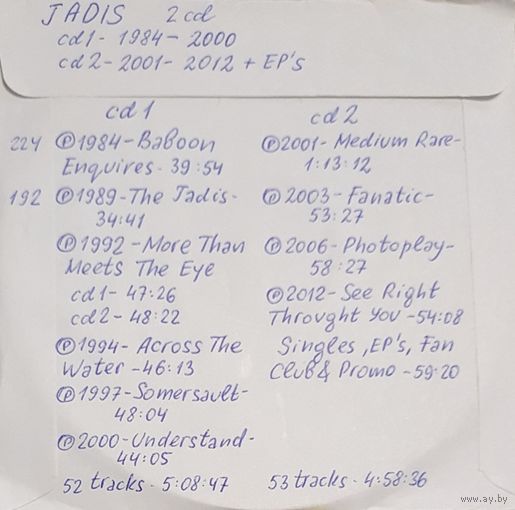 JADIS 2cd
cd1 - 1984 - 2000
cd2 - 2001 - 2012 + EP's
cd1
224 Ⓟ1984 - Baboon
Enquires - 39:54
192 Ⓟ1989 - The Jadis -
34:41
Ⓟ1992 - More Than
Meets The Eye
cd1 - 47:26
cd2 - 48:22
Ⓟ1994 - Across The
Water - 46:13
Ⓟ1997 - Somersault -
48:04
Ⓟ2000 - Understand -
44:05
52 tracks - 5:08:47
cd2
Ⓟ2001 - Medium Rare -
1:13:12
Ⓟ2003 - Fanatic -
53:27
Ⓟ2006 - Photoplay -
58:27
Ⓟ2012 - See Right
Throught You - 54:08
Singles, EP's, Fan
Club & Promo - 59:20
53 tracks - 4:58:36
www.ay.by